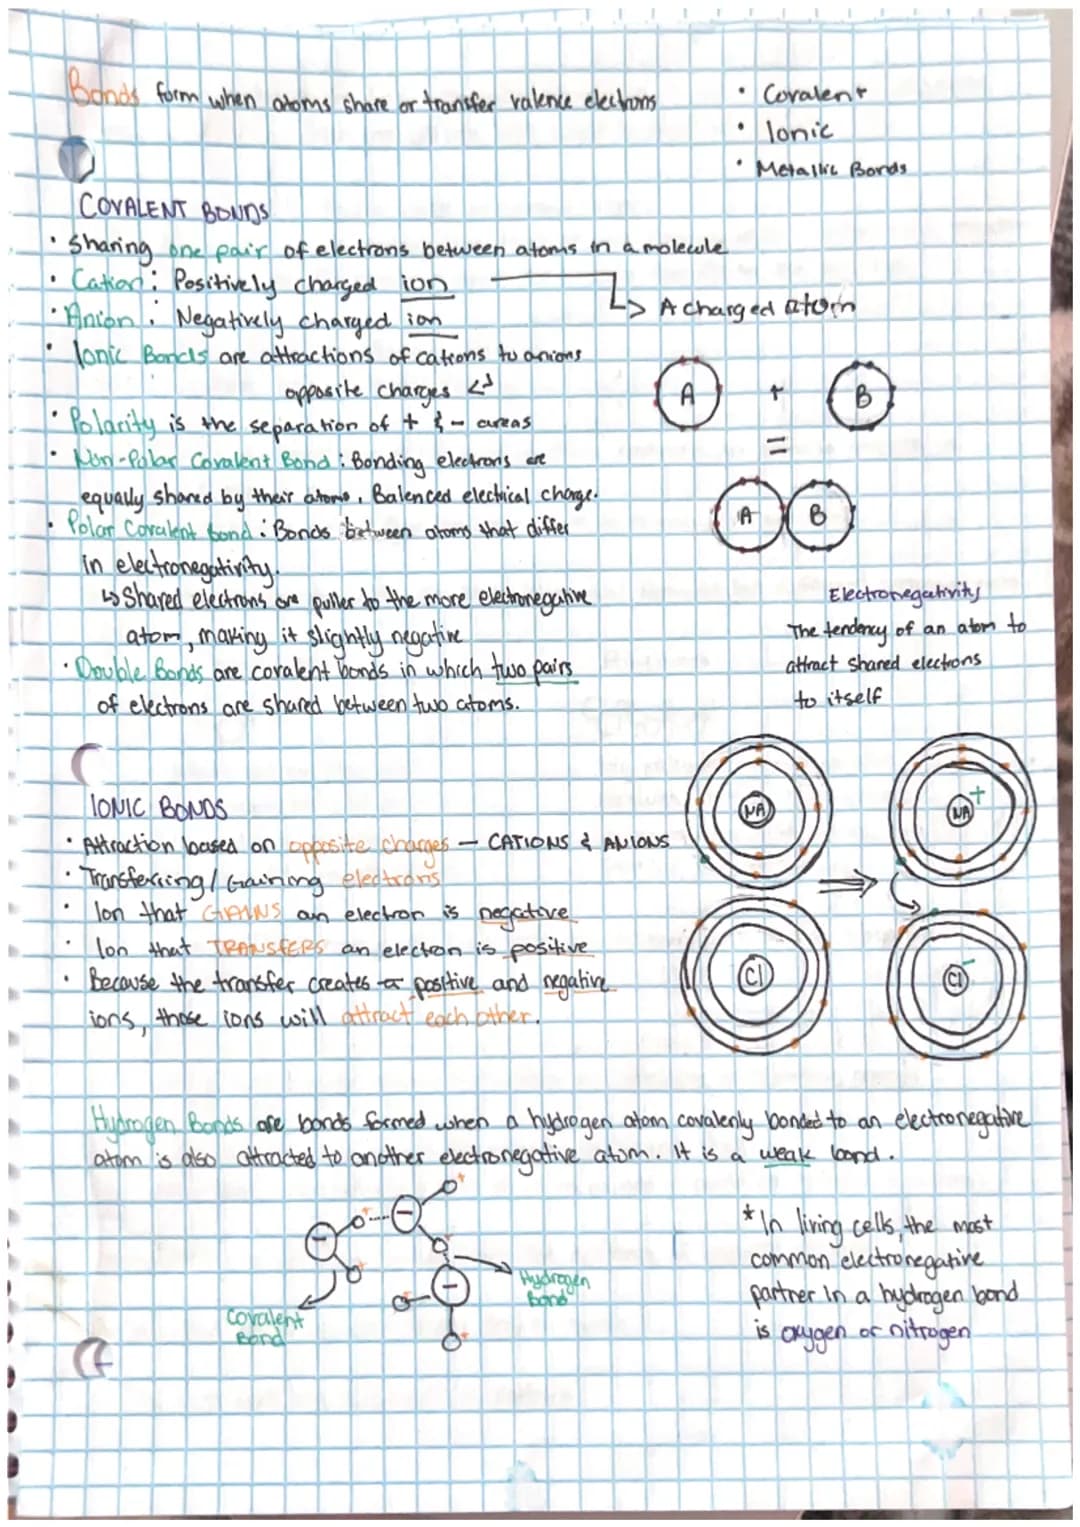 Bonds form when atoms share or transfer valence electrons
• Covalent
• Ionic
• Metallic Bonds
COVALENT BONDS
• Sharing one pair of electrons between atoms in a molecule
• Cation: Positively charged ion
↳> A charged atom
• Anion: Negatively charged ion
• Ionic Bonds are attractions of cations to anions
opposite charges
• Polarity is the separation of + & - areas
• Non-Polar Covalent Bond: Bonding electrons are
equally shared by their atoms. Balenced electrical charge.
• Polar Covalent bond: Bonds between atoms that differ
in electronegativity.
↳ Shared electrons are puller to the more electronegative
atom, making it slightly negative
• Double Bonds are covalent bonds in which two pairs
of electrons are shared between two atoms.
A + B
=
A B
Electronegativity
The tendency of an atom to
attract shared electrons
to itself
IONIC BONDS
• Attraction based on opposite charges — CATIONS & ANIONS
• Transferring/Gaining electrons
• Ion that GAINS an electron is negative
• Ion that TRANSFERS an electron is positive
• Because the transfer creates a positive and negative
ions, those ions will attract each other.
NA
NA +
Cl
Cl -
Hydrogen Bonds are bonds formed when a hydrogen atom covalenly bonded to an electronegative
atom is also attracted to another electronegative atom. It is a weak bond.
Hydrogen
Bond
Covalent
Bond
* In living cells, the most
common electronegative
partner in a hydrogen bond
is oxygen or nitrogen